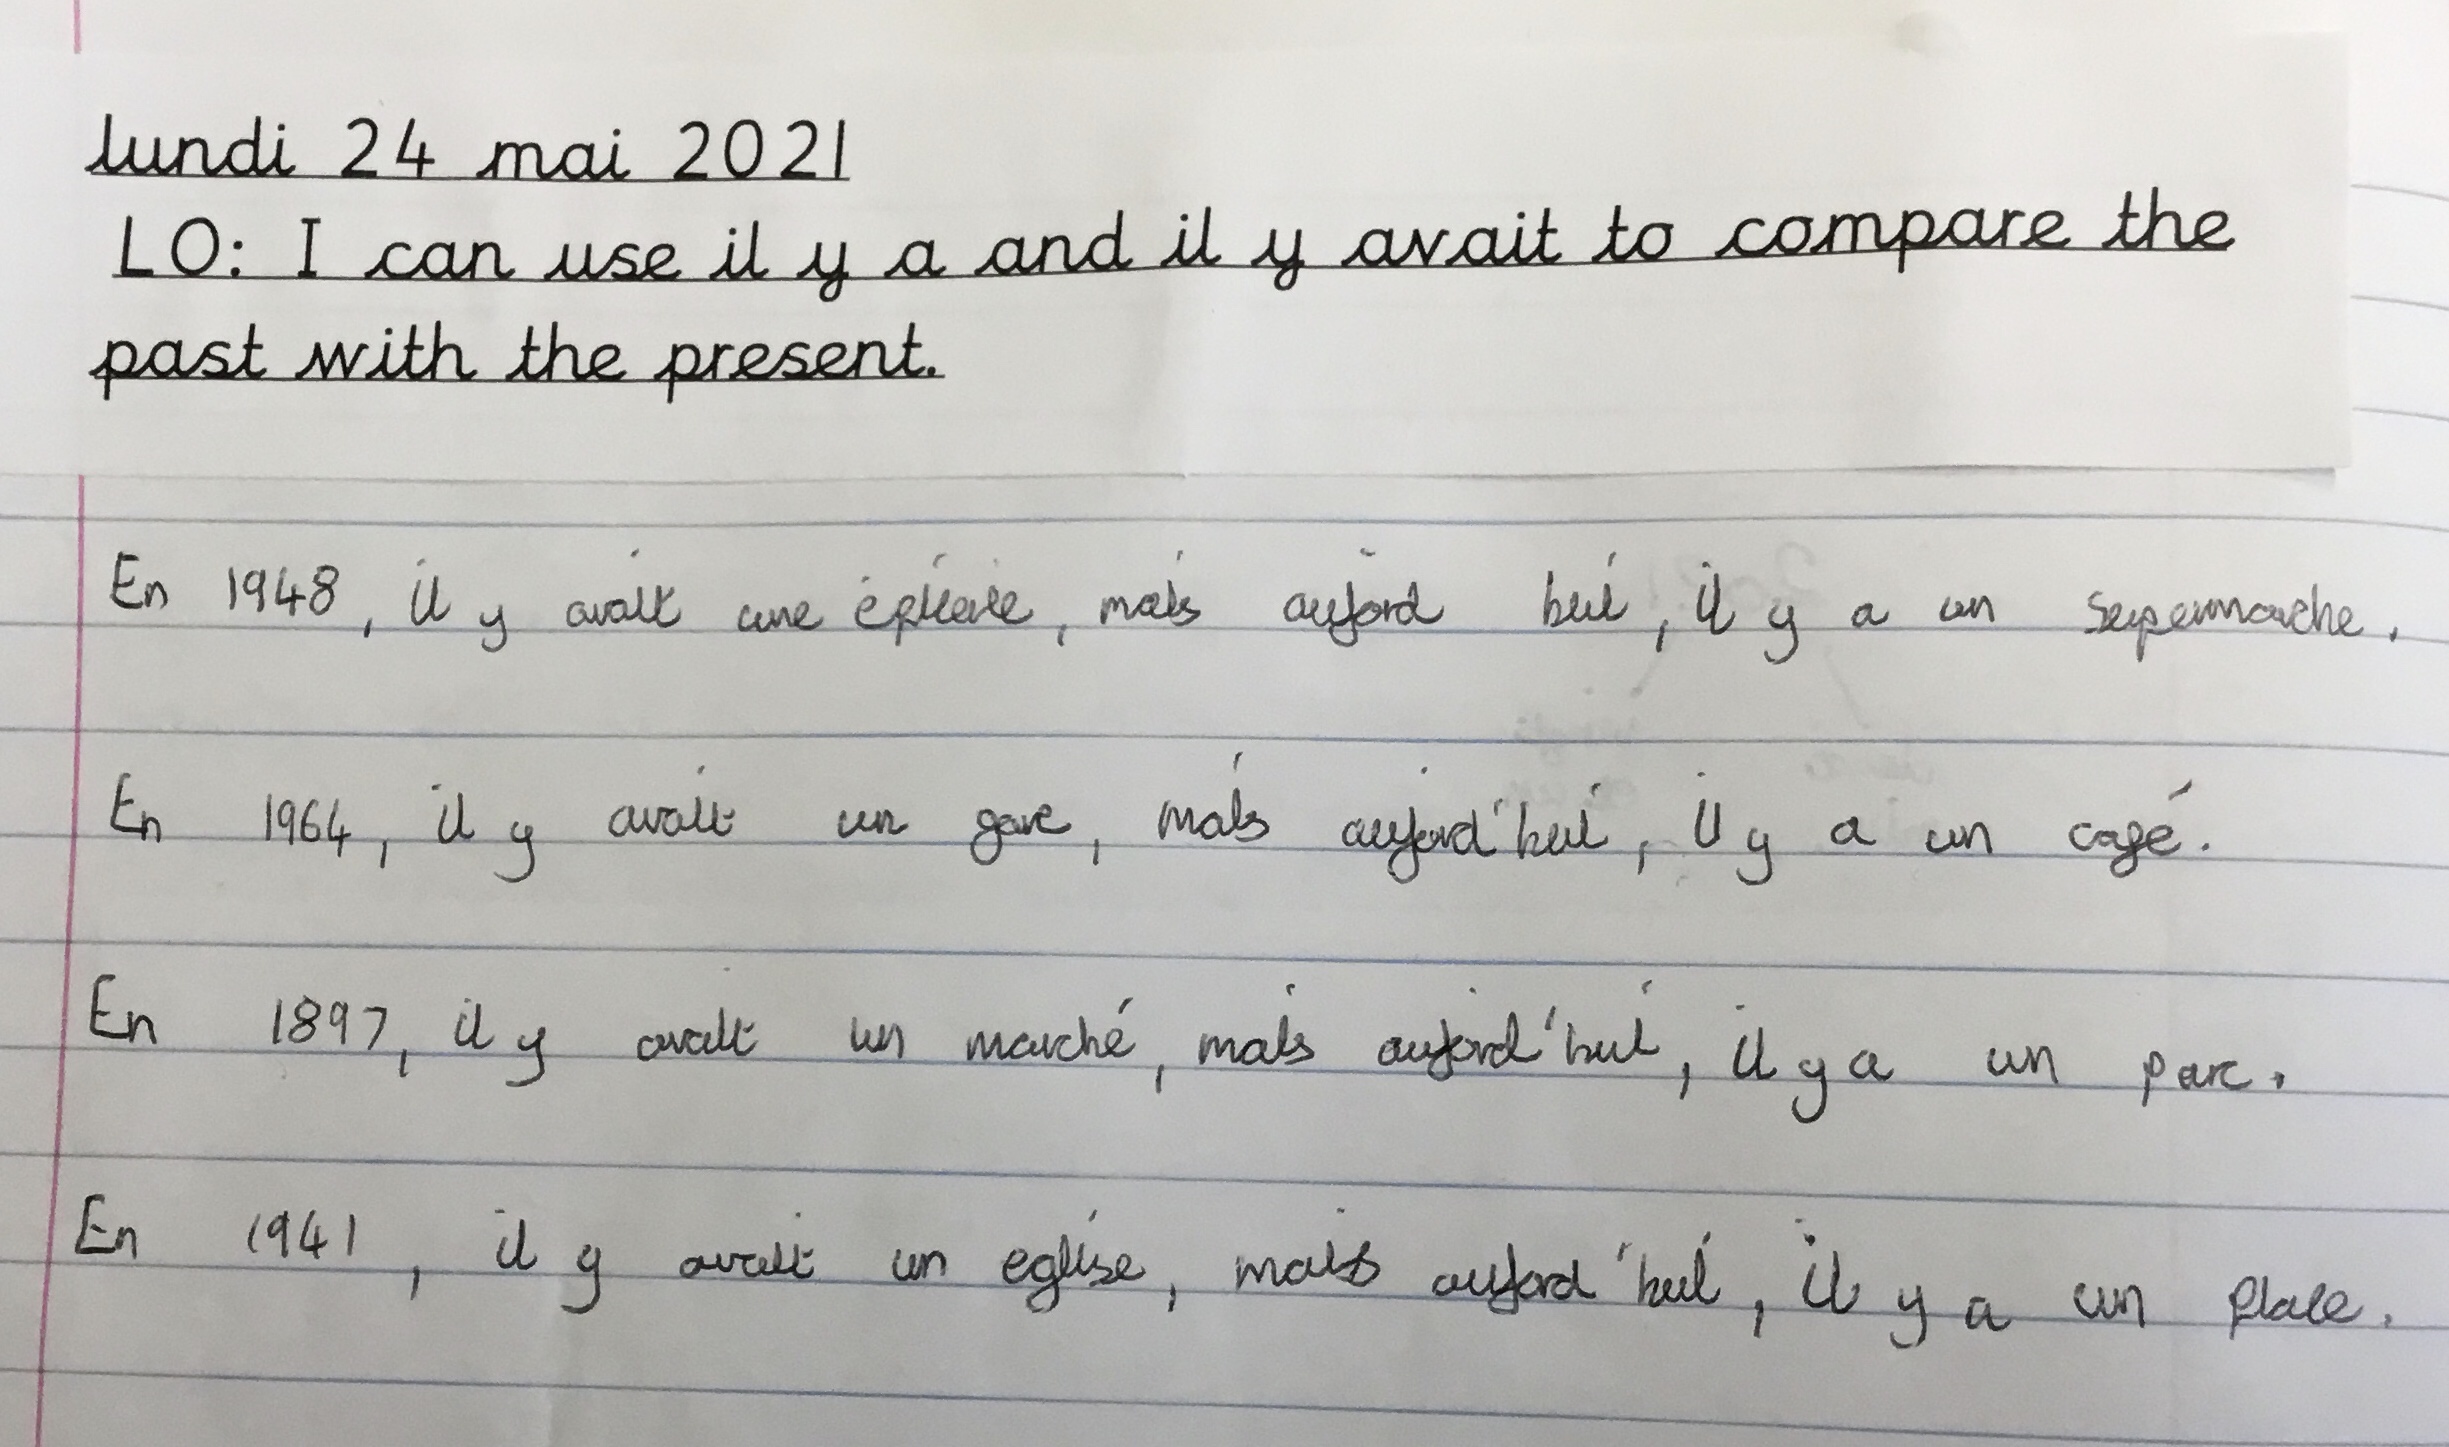 lundi 24 mai 2021
LO: I can use il y a and il y avait to compare the
past with the present.
En 1948, il y avait une épicerie, mais aujord hui, il y a un supermarche.
En 1964, il y avait un gare, mais aujord'hui, il y a un café.
En 1897, il y avait un marché, mais aujord'hui, il y a un parc.
En 1941, il y avait un eglise, mais aujord'hui, il y a un place.